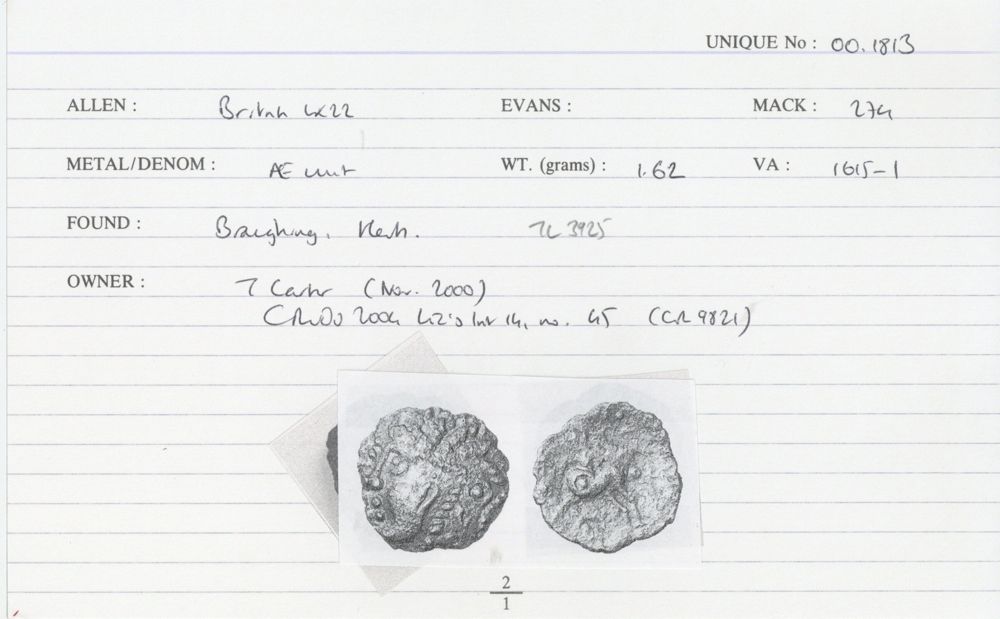 UNIQUE No : 00.1813
ALLEN : British LX22 EVANS : MACK : 274
METAL/DENOM : Æ unit WT. (grams) : 1.62 VA : 1615-1
FOUND : Braughing, Herts. TL 3925
OWNER : T Carter (Nov. 2000)
2004 14, no. 45 (CR 9821)
2
1